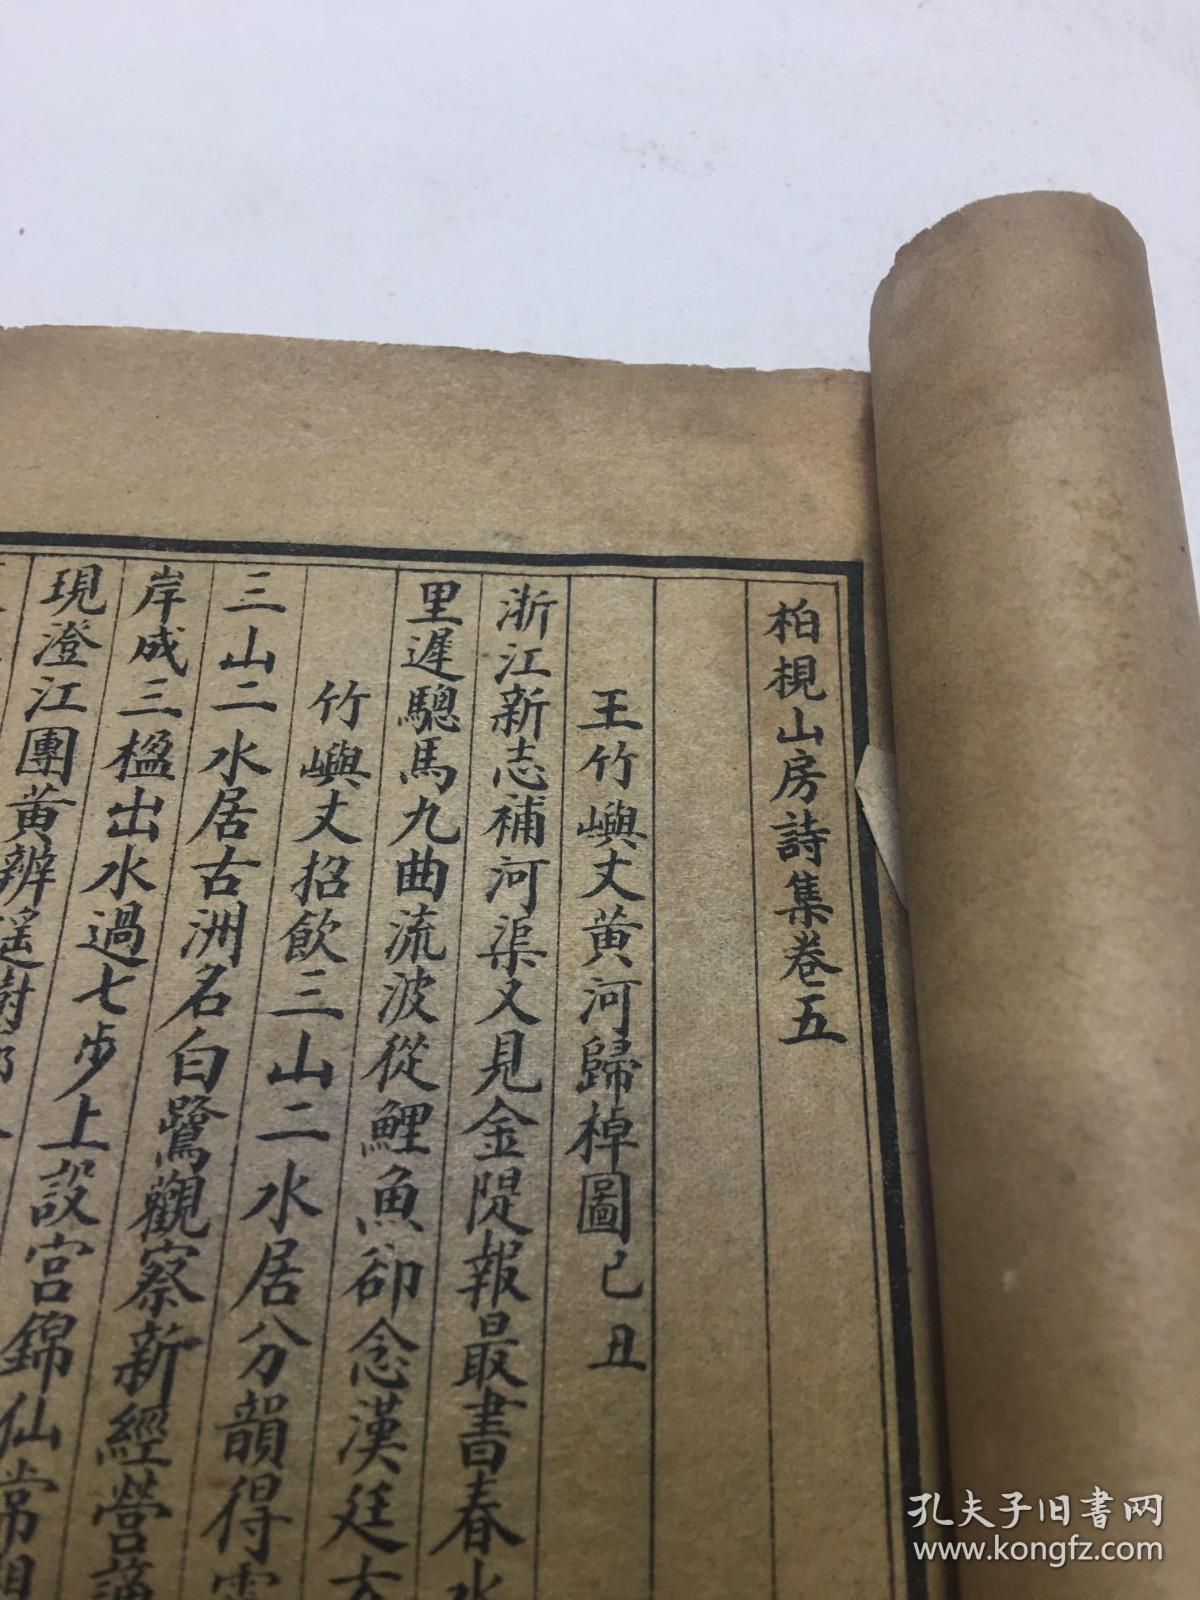 柏梘山房詩集卷五
王竹嶼丈黄河歸棹圖己丑
浙江新志補河渠又見金隄報最書春水
里遲驄馬九曲流波從鯉魚卻念漢廷方
竹嶼丈招飲三山二水居分韻得
三山二水居古洲名白鷺觀察新經營
岸成三楹出水過七步上設宮錦仙常
現澄江團黄辨遥樹
孔夫子旧書网
www.kongfz.com